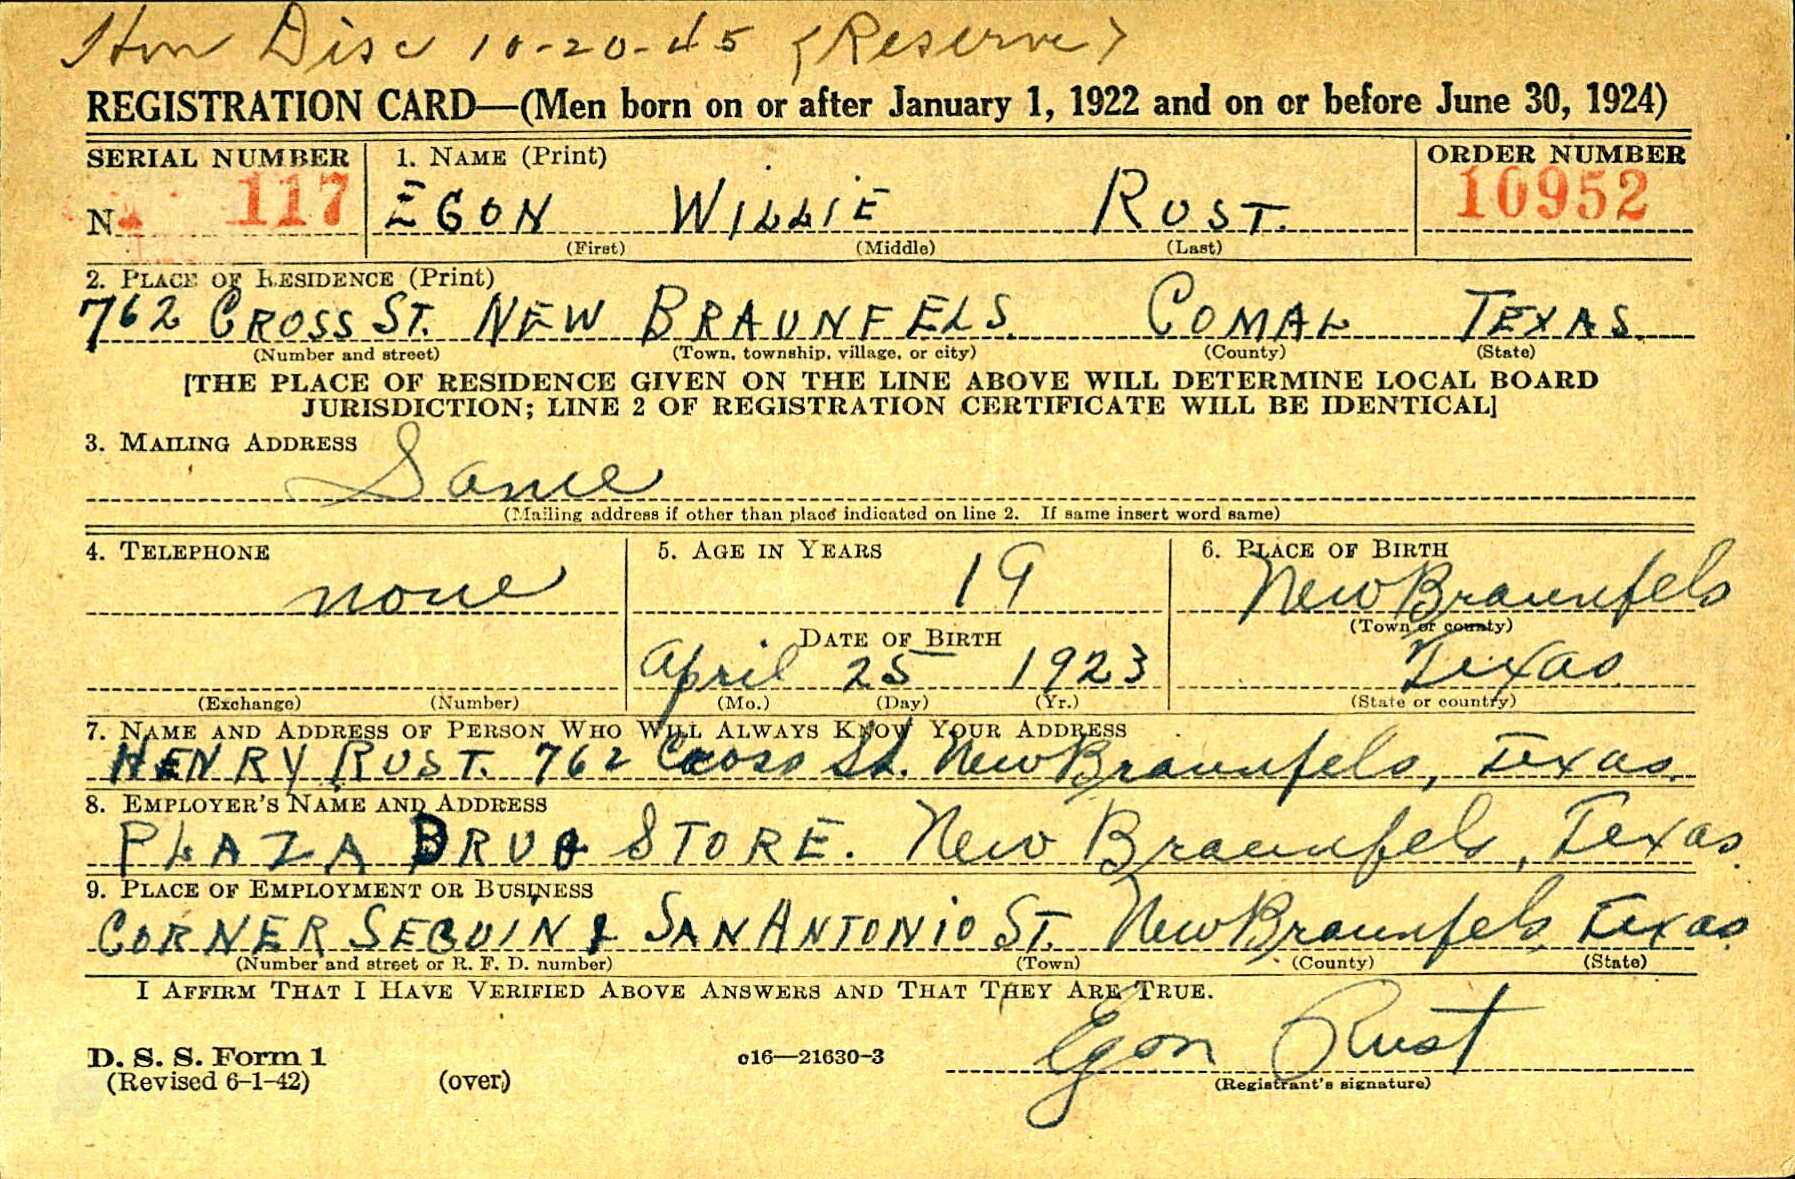 Hon Disc 10-20-45 (Reserve)
REGISTRATION CARD—(Men born on or after January 1, 1922 and on or before June 30, 1924)
SERIAL NUMBER 1. NAME (Print) ORDER NUMBER
N 117 EGON WILLIE RUST. 10952
(First) (Middle) (Last)
2. PLACE OF RESIDENCE (Print)
762 CROSS ST. NEW BRAUNFELS. COMAL TEXAS.
(Number and street) (Town, township, village, or city) (County) (State)
[THE PLACE OF RESIDENCE GIVEN ON THE LINE ABOVE WILL DETERMINE LOCAL BOARD
JURISDICTION; LINE 2 OF REGISTRATION CERTIFICATE WILL BE IDENTICAL]
3. MAILING ADDRESS
Same
(Mailing address if other than place indicated on line 2. If same insert word same)
4. TELEPHONE 5. AGE IN YEARS 6. PLACE OF BIRTH
none 19 New Braunfels
(Town or county)
DATE OF BIRTH
April 25 1923 Texas
(Exchange) (Number) (Mo.) (Day) (Yr.) (State or country)
7. NAME AND ADDRESS OF PERSON WHO WILL ALWAYS KNOW YOUR ADDRESS
HENRY RUST. 762 Cross St. New Braunfels, Texas.
8. EMPLOYER'S NAME AND ADDRESS
PLAZA DRUG STORE. New Braunfels, Texas.
9. PLACE OF EMPLOYMENT OR BUSINESS
CORNER SEGUIN & SAN ANTONIO ST. New Braunfels Texas
(Number and street or R. F. D. number) (Town) (County) (State)
I AFFIRM THAT I HAVE VERIFIED ABOVE ANSWERS AND THAT THEY ARE TRUE.
Egon Rust
D. S. S. Form 1 c16—21630-3
(Revised 6-1-42) (over) (Registrant's signature)